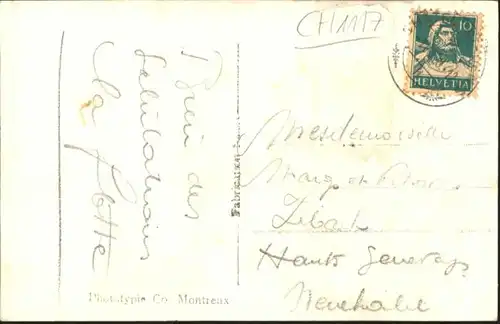 CH1117
10
HELVETIA
Bien des
Salutations
La Flotte
Mesdemoiselles
Marg et
Hauts Geneveys
Neuchâtel
Phototypie Co. Montreux